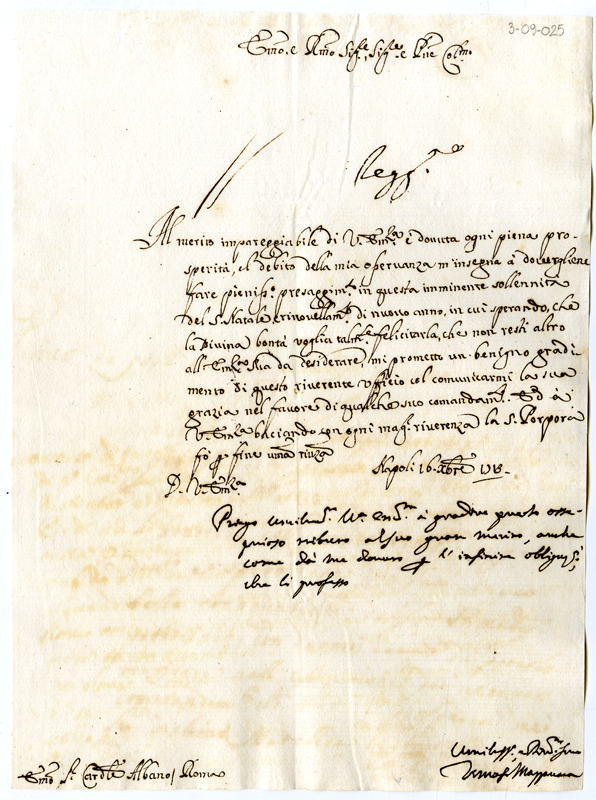 3-09-025
Emo, e Rmo Sig.e, Sig.e e Pne Col.mo
Al merito impareggiabile di V. Em.za è dovuta ogni piena pro-
sperità, el debito della mia osservanza m'insegna à dovergliene
fare pieniss.o presaggim.to in questa imminente sollennità
del S. Natale, e rinovellam.to di nuovo anno, in cui sperando, che
la Divina bontà voglia talm.te felicitarla, che non resti altro
all'Em.za Sua da desiderare, mi prometto un benigno gradi-
mento di questo riverente ufficio col comunicarmi la sua
grazia nel favore di qualche suo comandam.to. E à
V. Em.za baciando con ogni mag.r riverenza la S. Porpora
fò fine
Napoli 16. Xbre 1713.
D. V. Em.za
Prego V.a Em.za à gradire questo osse-
quioso tributo al suo gran merito, anche
come dà me dovuto l'infinite obligaz.ni
che li professo
Emo S.r Card.le Albano / Roma